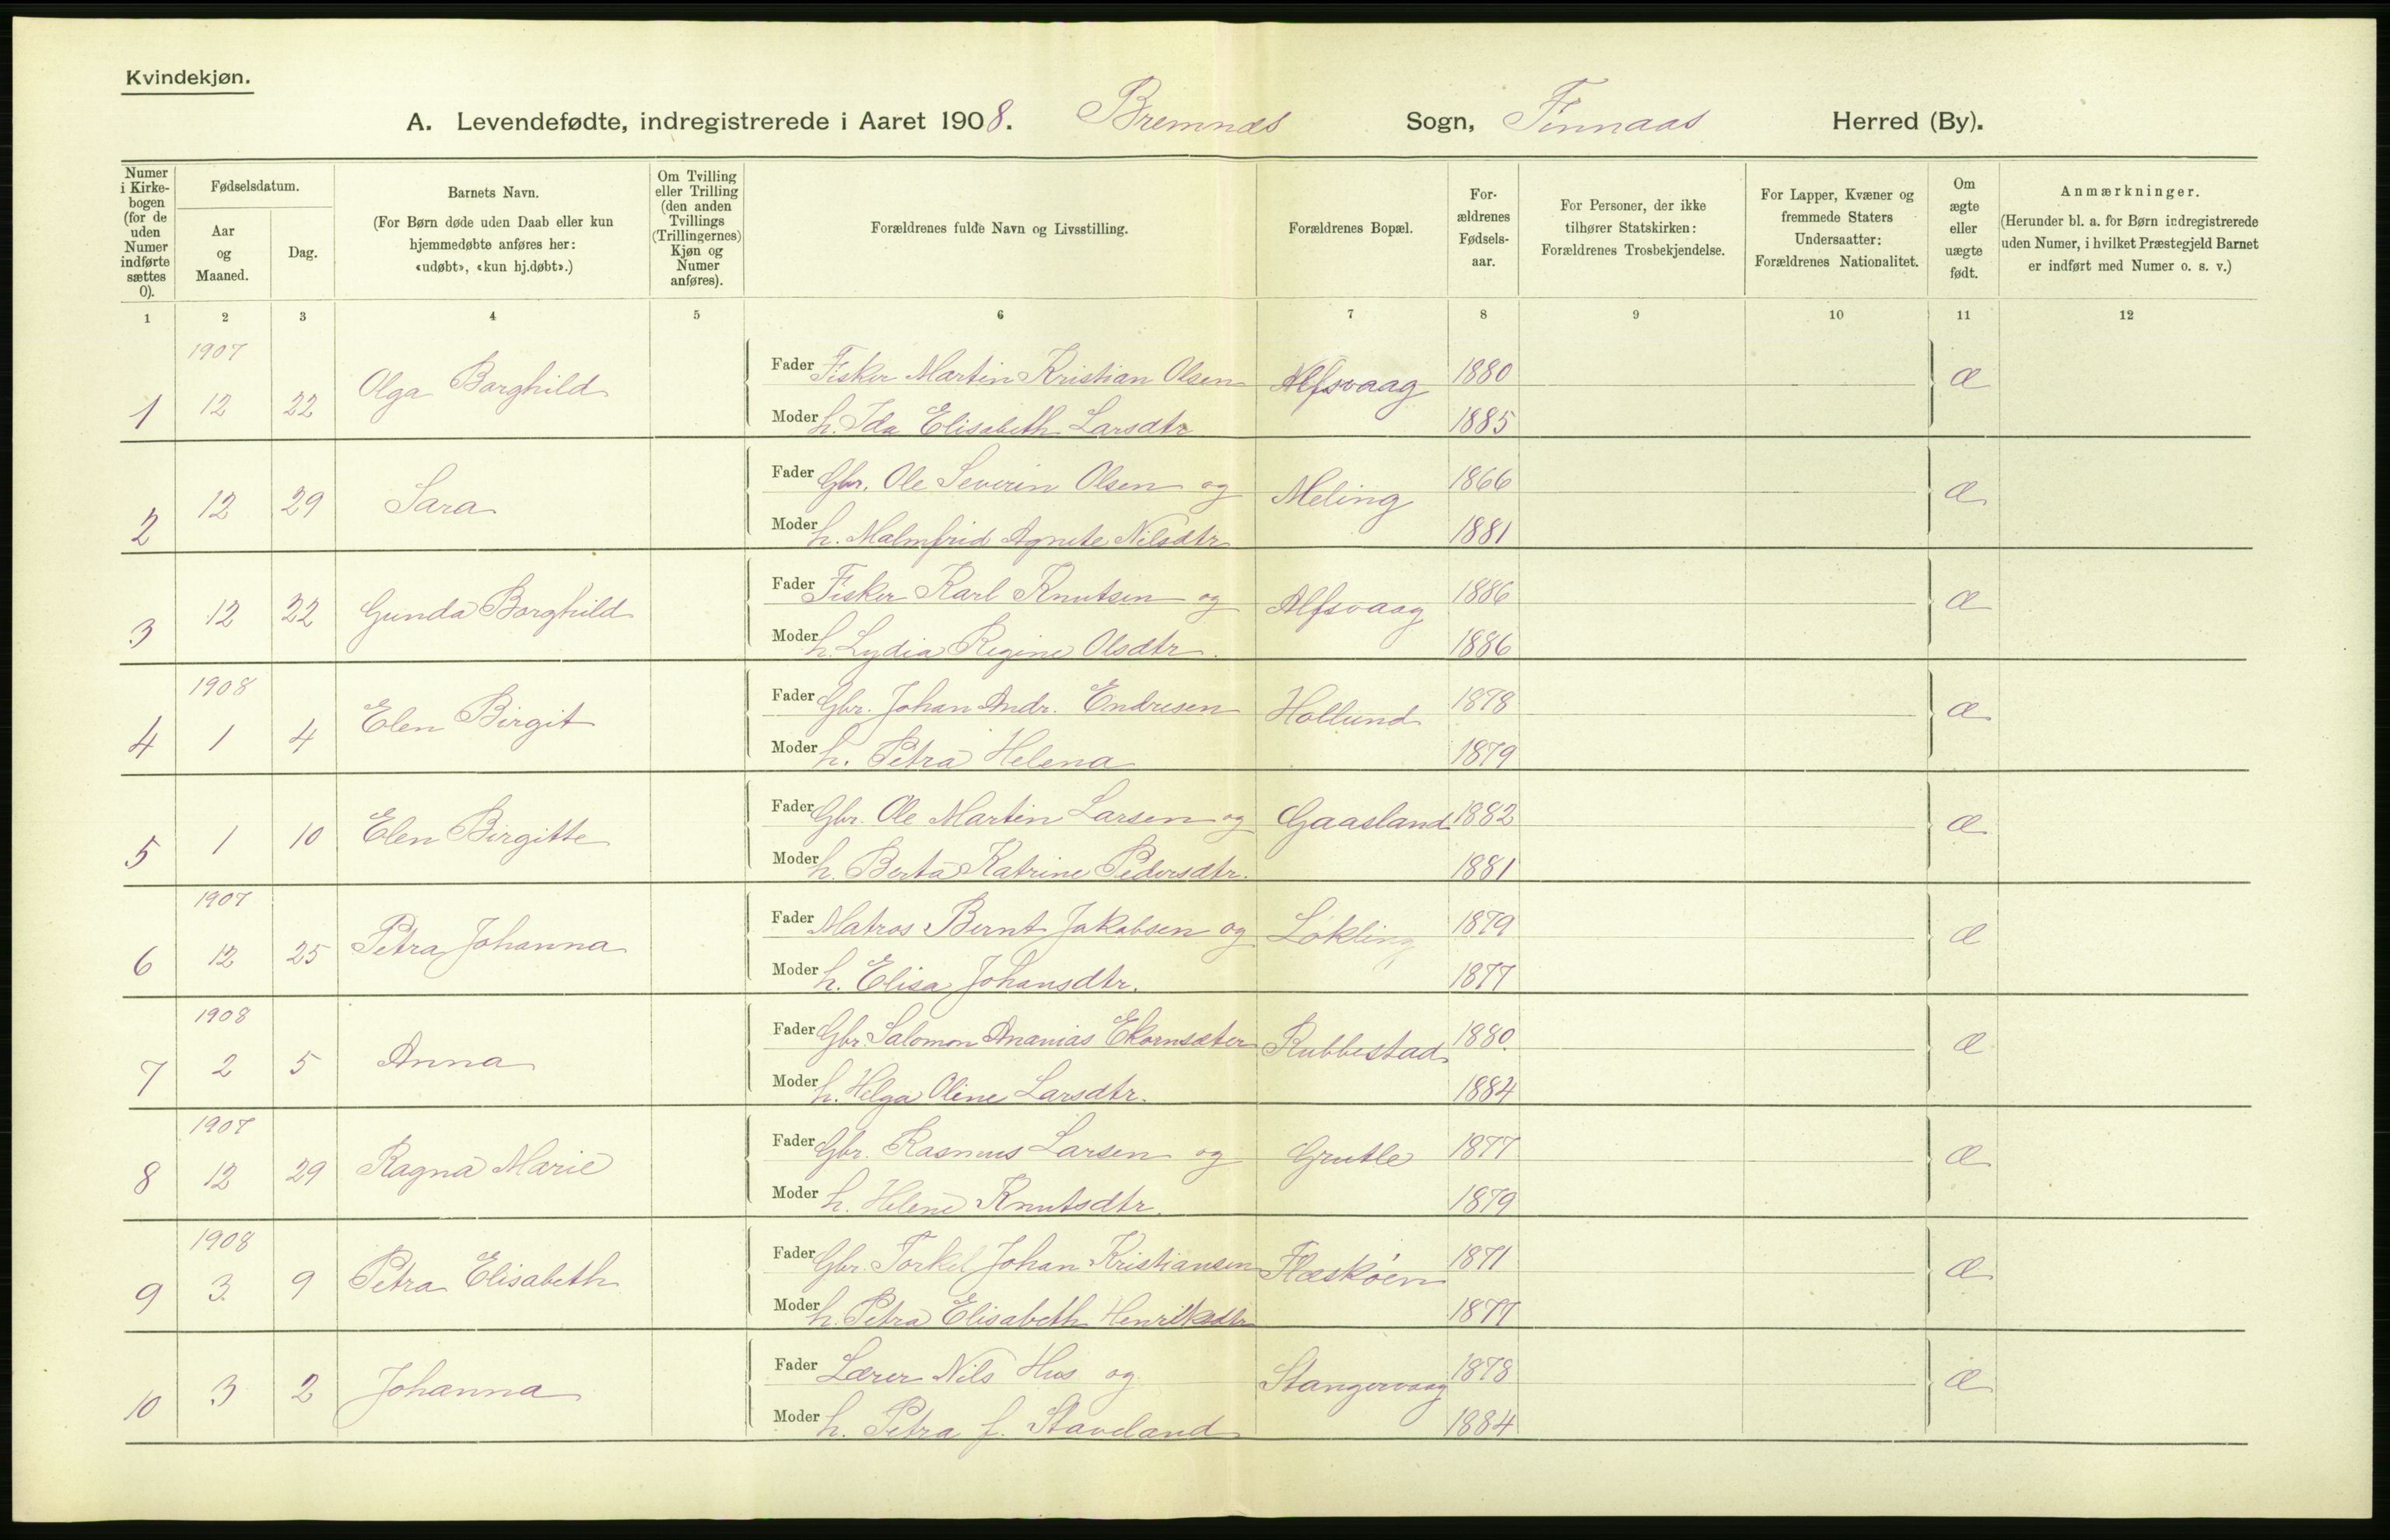 Kvindekjøn.
A. Levendefødte, indregistrerede i Aaret 1908. Bremnes Sogn, Finnaas Herred (By).
Numer i Kirke-bogen (for de uden Numer indførte sættes 0).
Fødselsdatum.
Aar og Maaned.
Dag.
Barnets Navn.
(For Børn døde uden Daab eller kun hjemmedøbte anføres her: «udøbt», «kun hj.døbt».)
Om Tvilling eller Trilling (den anden Tvillings (Trillingernes) Kjøn og Numer anføres).
Forældrenes fulde Navn og Livsstilling.
Forældrenes Bopæl.
For-ældrenes Fødsels-aar.
For Personer, der ikke tilhører Statskirken: Forældrenes Trosbekjendelse.
For Lapper, Kvæner og fremmede Staters Undersaatter: Forældrenes Nationalitet.
Om ægte eller uægte født.
Anmærkninger.
(Herunder bl. a. for Børn indregistrerede uden Numer, i hvilket Præstegjeld Barnet er indført med Numer o. s. v.)
1 2 3 4 5 6 7 8 9 10 11 12
1907
1 12 22 Olga Borghild Fader Fisker Martin Kristian Olsen Alfsvaag 1880 æ
Moder h. Ida Elisabeth Larsdtr 1885
2 12 29 Sara Fader Gbr. Ole Severin Olsen og Meling 1866 æ
Moder h. Malmfrid Agnete Nilsdtr 1881
3 12 22 Gunda Borghild Fader Fisker Karl Knutsen og Alfsvaag 1886 æ
Moder h. Lydia Regine Olsdtr. 1886
1908
4 1 4 Elen Birgit Fader Gbr. Johan Andr. Endresen Hollund 1878 æ
Moder h. Petra Helena 1879
5 1 10 Elen Birgitte Fader Gbr. Ole Martin Larsen og Gaasland 1882 æ
Moder h. Berta Katrine Pedersdtr. 1881
1907
6 12 25 Petra Johanna Fader Matros Bernt Jakobsen og Løkling 1879 æ
Moder h. Elisa Johansdtr. 1877
1908
7 2 5 Anna Fader Gbr. Salomon Ananias Ekornsæter Rubbestad 1880. æ
Moder h. Helga Oline Larsdtr. 1884
1907
8 12 29 Ragna Marie Fader Gbr. Rasmus Larsen og Grutle 1877 æ
Moder h. Helene Knutsdtr. 1879
1908
9 3. 9 Petra Elisabeth Fader Gbr. Torkel Johan Kristiansen Flæskøen 1871 æ
Moder h. Petra Elisabeth Henriksdtr 1877
10 3 2 Johanna Fader Lærer Nils Hus og Stangervaag 1878 æ
Moder h. Petra f. Staveland 1884